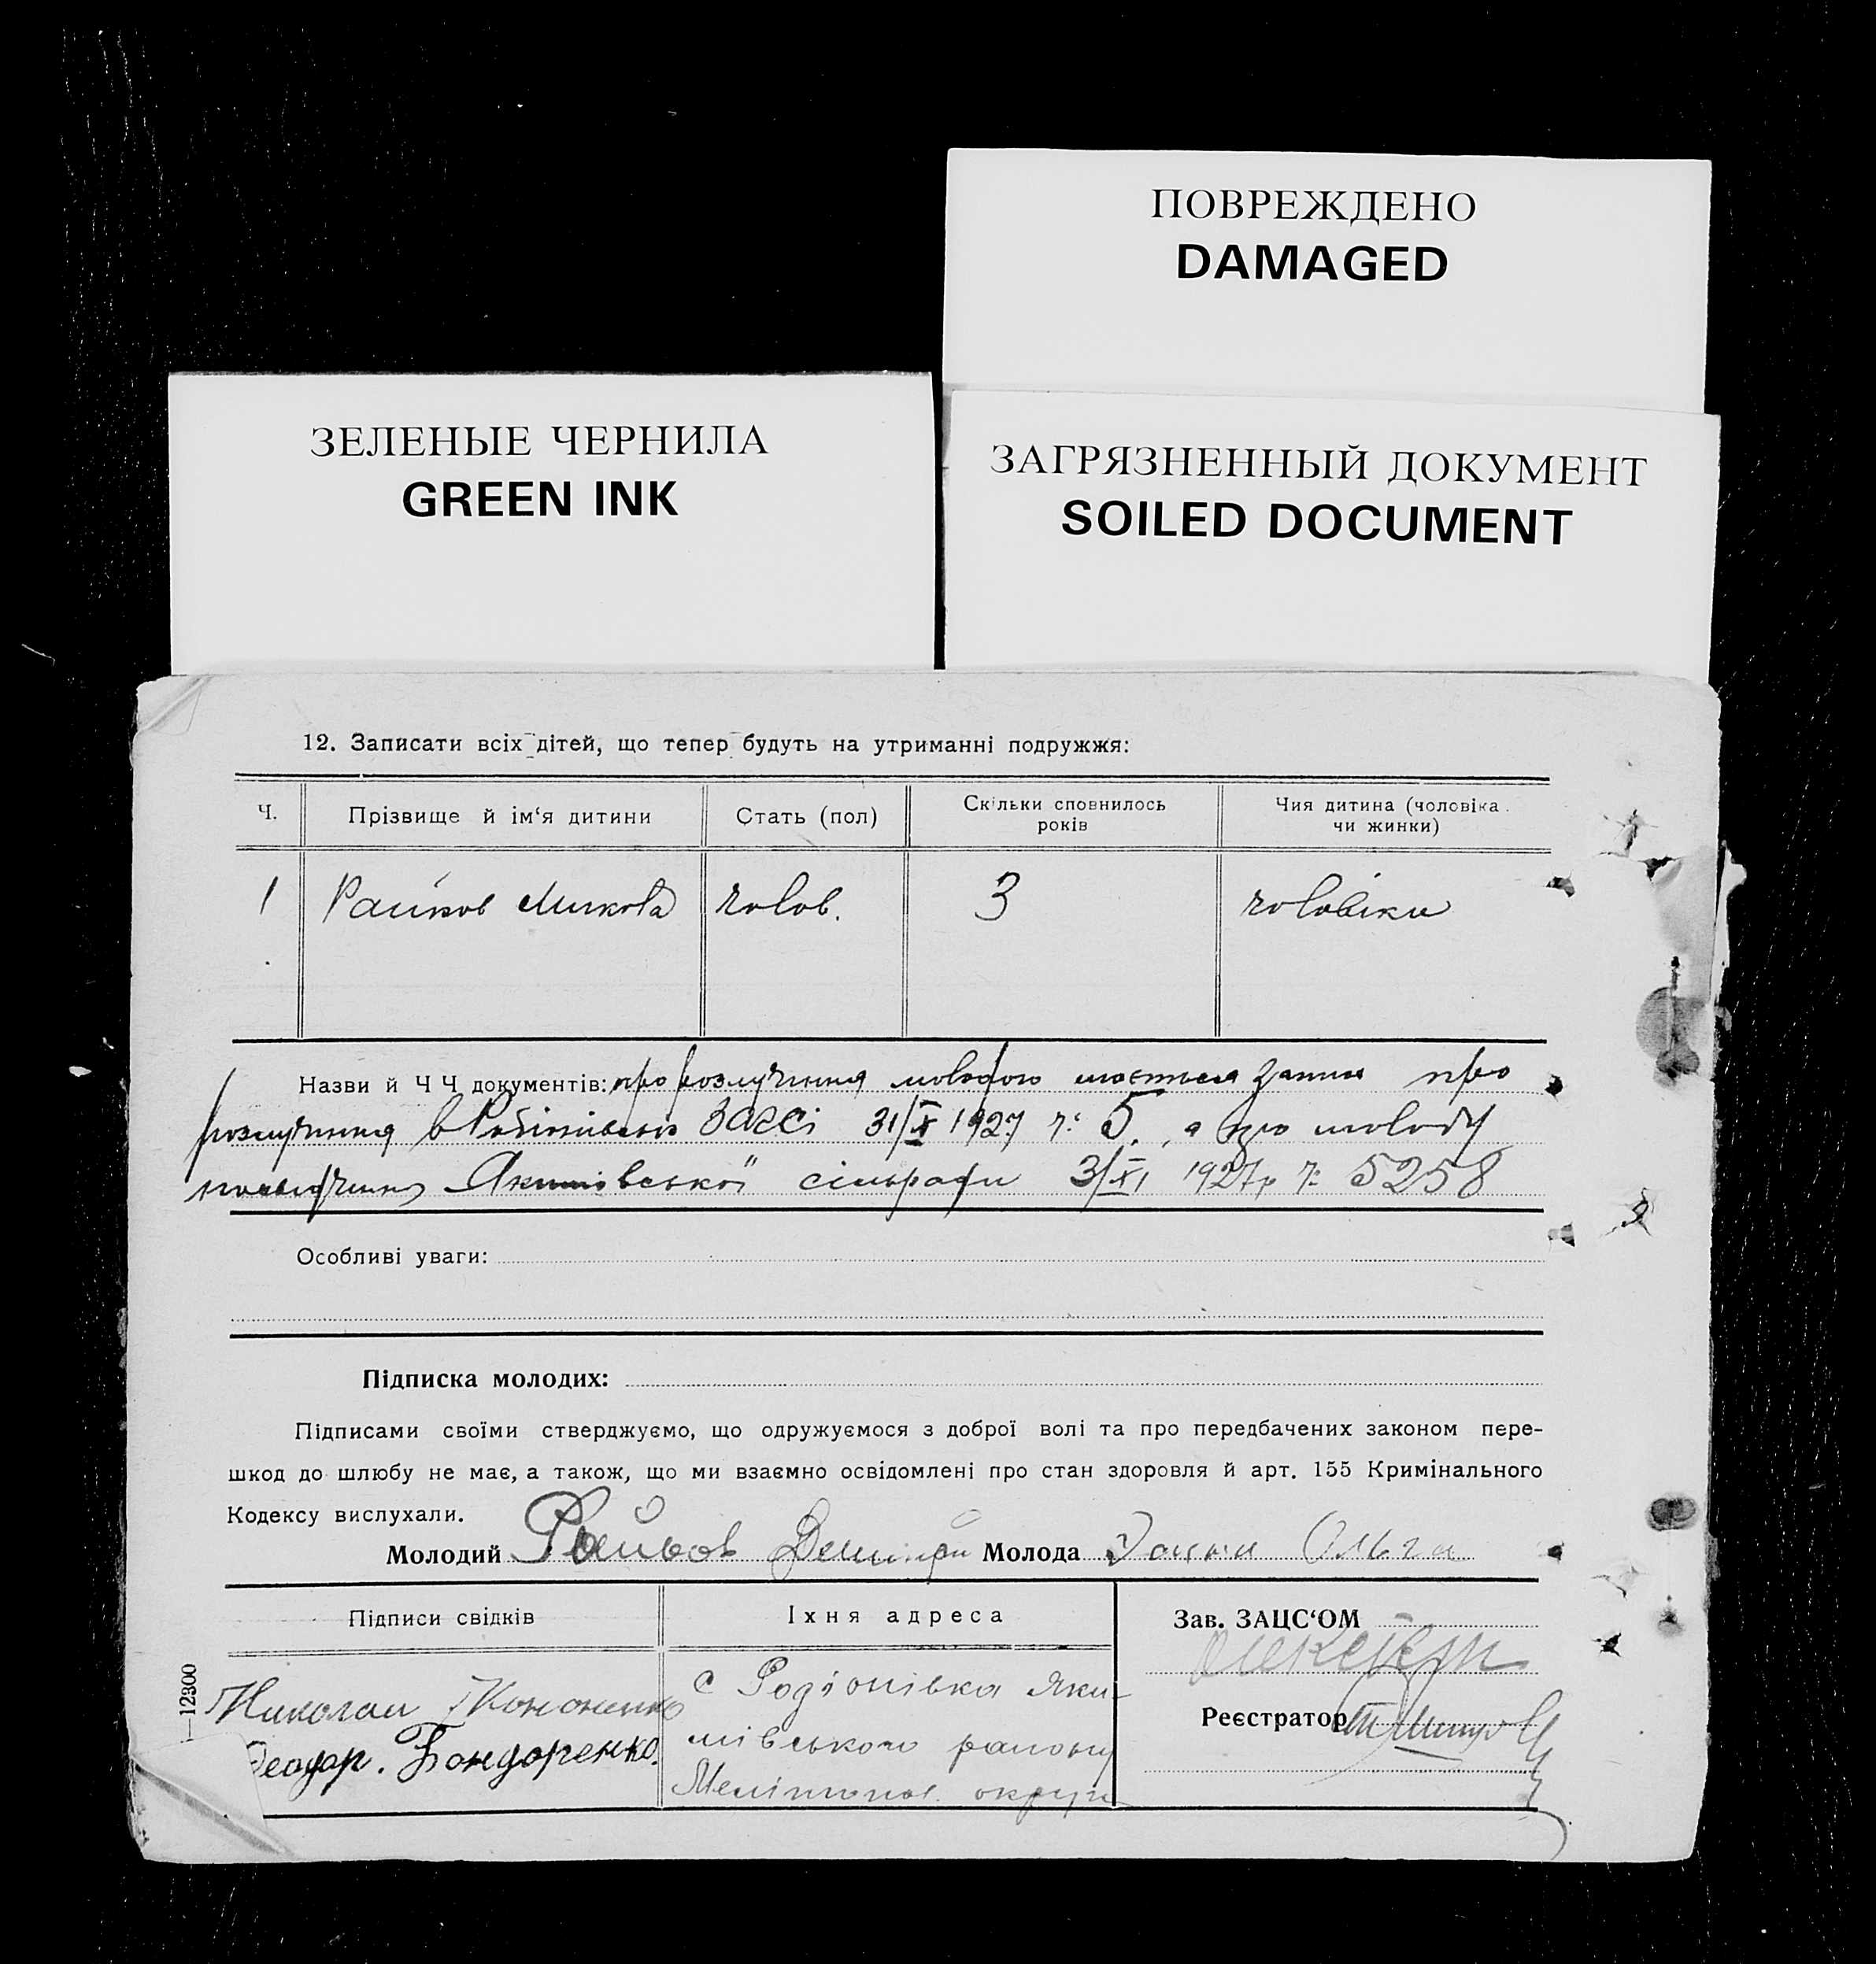 ПОВРЕЖДЕНО
DAMAGED
ЗЕЛЕНЫЕ ЧЕРНИЛА
GREEN INK
ЗАГРЯЗНЕННЫЙ ДОКУМЕНТ
SOILED DOCUMENT
12. Записати всіх дітей, що тепер будуть на утриманні подружжя:
Ч. Прізвище й ім‘я дитини Стать (пол) Скільки сповнилось років Чия дитина (чоловіка чи жинки)
1 Райков Микола чолов. 3 чоловіки
Назви й Ч Ч документів: про розлучення молодого мається запис про
розлучення в 31/X 1927 ч: 5., а про молоду
посвідчення Якимівської сільради 3/XI 1927р ч: 5258
Особливі уваги:
Підписка молодих:
Підписами своїми стверджуємо, що одружуємося з доброї волі та про передбачених законом пере-
шкод до шлюбу не має, а також, що ми взаємно освідомлені про стан здоровля й арт. 155 Кримінального
Кодексу вислухали.
Молодий Райков Молода Ольга
Підписи свідків Їхня адреса Зав. ЗАЦС‘ОМ
Николаи Кононенко с Родіонівка Яки-
мівського району Реєстратор
Бондоренко. Меліտопол. округи
—12300